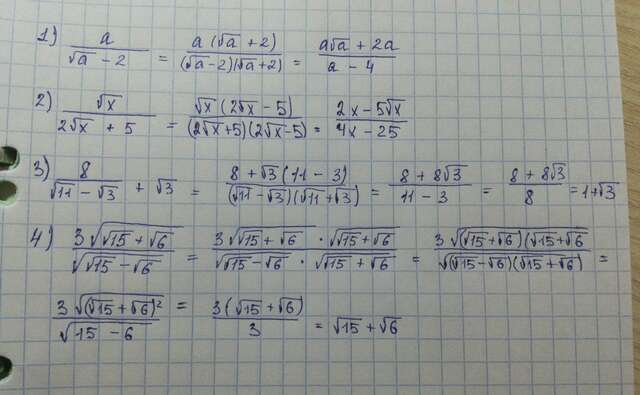 1) a/(√a - 2) = a(√a + 2)/((√a - 2)(√a + 2)) = (a√a + 2a)/(a - 4)
2) √x/(2√x + 5) = √x(2√x - 5)/((2√x + 5)(2√x - 5)) = (2x - 5√x)/(4x - 25)
3) 8/(√11 - √3) + √3 = (8 + √3(11 - 3))/((√11 - √3)(√11 + √3)) = (8 + 8√3)/(11 - 3) = (8 + 8√3)/8 = 1+√3
4) 3√(√15 + √6)/√(√15 - √6) = (3√(√15 + √6) · √(√15 + √6))/(√(√15 - √6) · √(√15 + √6)) = 3√((√15 + √6)(√15 + √6)/√((√15 - √6)(√15 + √6)) =
3√((√15 + √6)²)/√(15 - 6) = 3(√15 + √6)/3 = √15 + √6